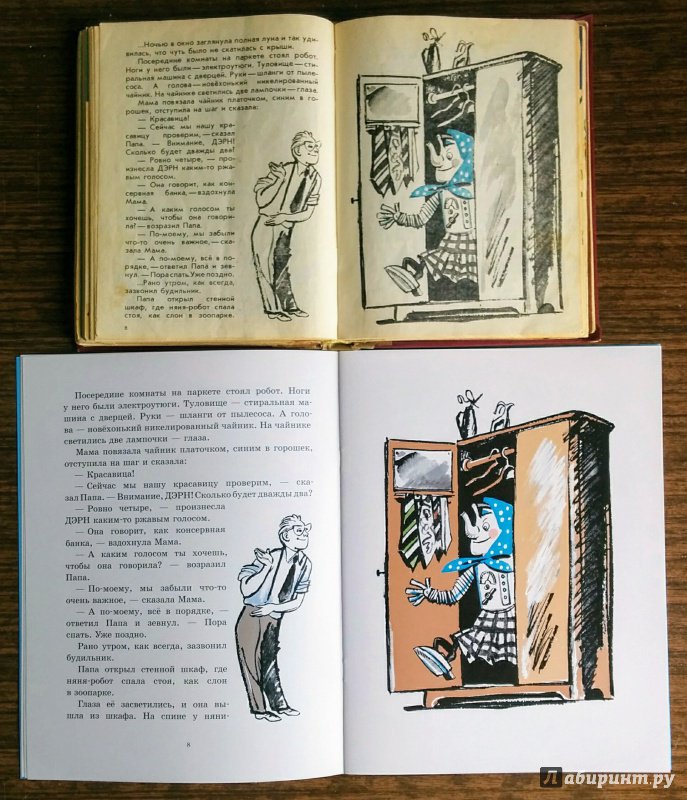 ...Ночью в окно заглянула полная луна и так уди-
вилась, что чуть было не скатилась с крыши.
Посередине комнаты на паркете стоял робот.
Ноги у него были — электроутюги. Туловище — сти-
ральная машина с дверцей. Руки — шланги от пыле-
соса. А голова — новёхонький никелированный
чайник. На чайнике светились две лампочки — глаза.
Мама повязала чайник платочком, синим в го-
рошек, отступила на шаг и сказала:
— Красавица!
— Сейчас мы нашу кра-
савицу проверим, — сказал
Папа. — Внимание, ДЭРН!
Сколько будет дважды два?
— Ровно четыре, — про-
изнесла ДЭРН каким-то ржа-
вым голосом.
— Она говорит, как кон-
сервная банка, — вздохнула
Мама.
— А каким голосом ты
хочешь, чтобы она говори-
ла? — возразил Папа.
— По-моему, мы забыли
что-то очень важное, — ска-
зала Мама.
— А по-моему, всё в по-
рядке, — ответил Папа и зев-
нул. — Пора спать. Уже поздно.
...Рано утром, как всегда,
зазвонил будильник.
Папа открыл стенной
шкаф, где няня-робот спала
стоя, как слон в зоопарке.
8
Посередине комнаты на паркете стоял робот. Ноги
у него были — электроутюги. Туловище — стиральная ма-
шина с дверцей. Руки — шланги от пылесоса. А голо-
ва — новёхонький никелированный чайник. На чайнике
светились две лампочки — глаза.
Мама повязала чайник платочком, синим в горошек,
отступила на шаг и сказала:
— Красавица!
— Сейчас мы нашу красавицу проверим, — ска-
зал Папа. — Внимание, ДЭРН! Сколько будет дважды два?
— Ровно четыре, — произнесла
ДЭРН каким-то ржавым голосом.
— Она говорит, как консервная
банка, — вздохнула Мама.
— А каким голосом ты хочешь,
чтобы она говорила? — возразил
Папа.
— По-моему, мы забыли что-то
очень важное, — сказала Мама.
— А по-моему, всё в порядке, —
ответил Папа и зевнул. — Пора
спать. Уже поздно.
Рано утром, как всегда, зазвонил
будильник.
Папа открыл стенной шкаф, где
няня-робот спала стоя, как слон
в зоопарке.
Глаза её засветились, и она вы-
шла из шкафа. На спине у няни-
8
Лабиринт.ру